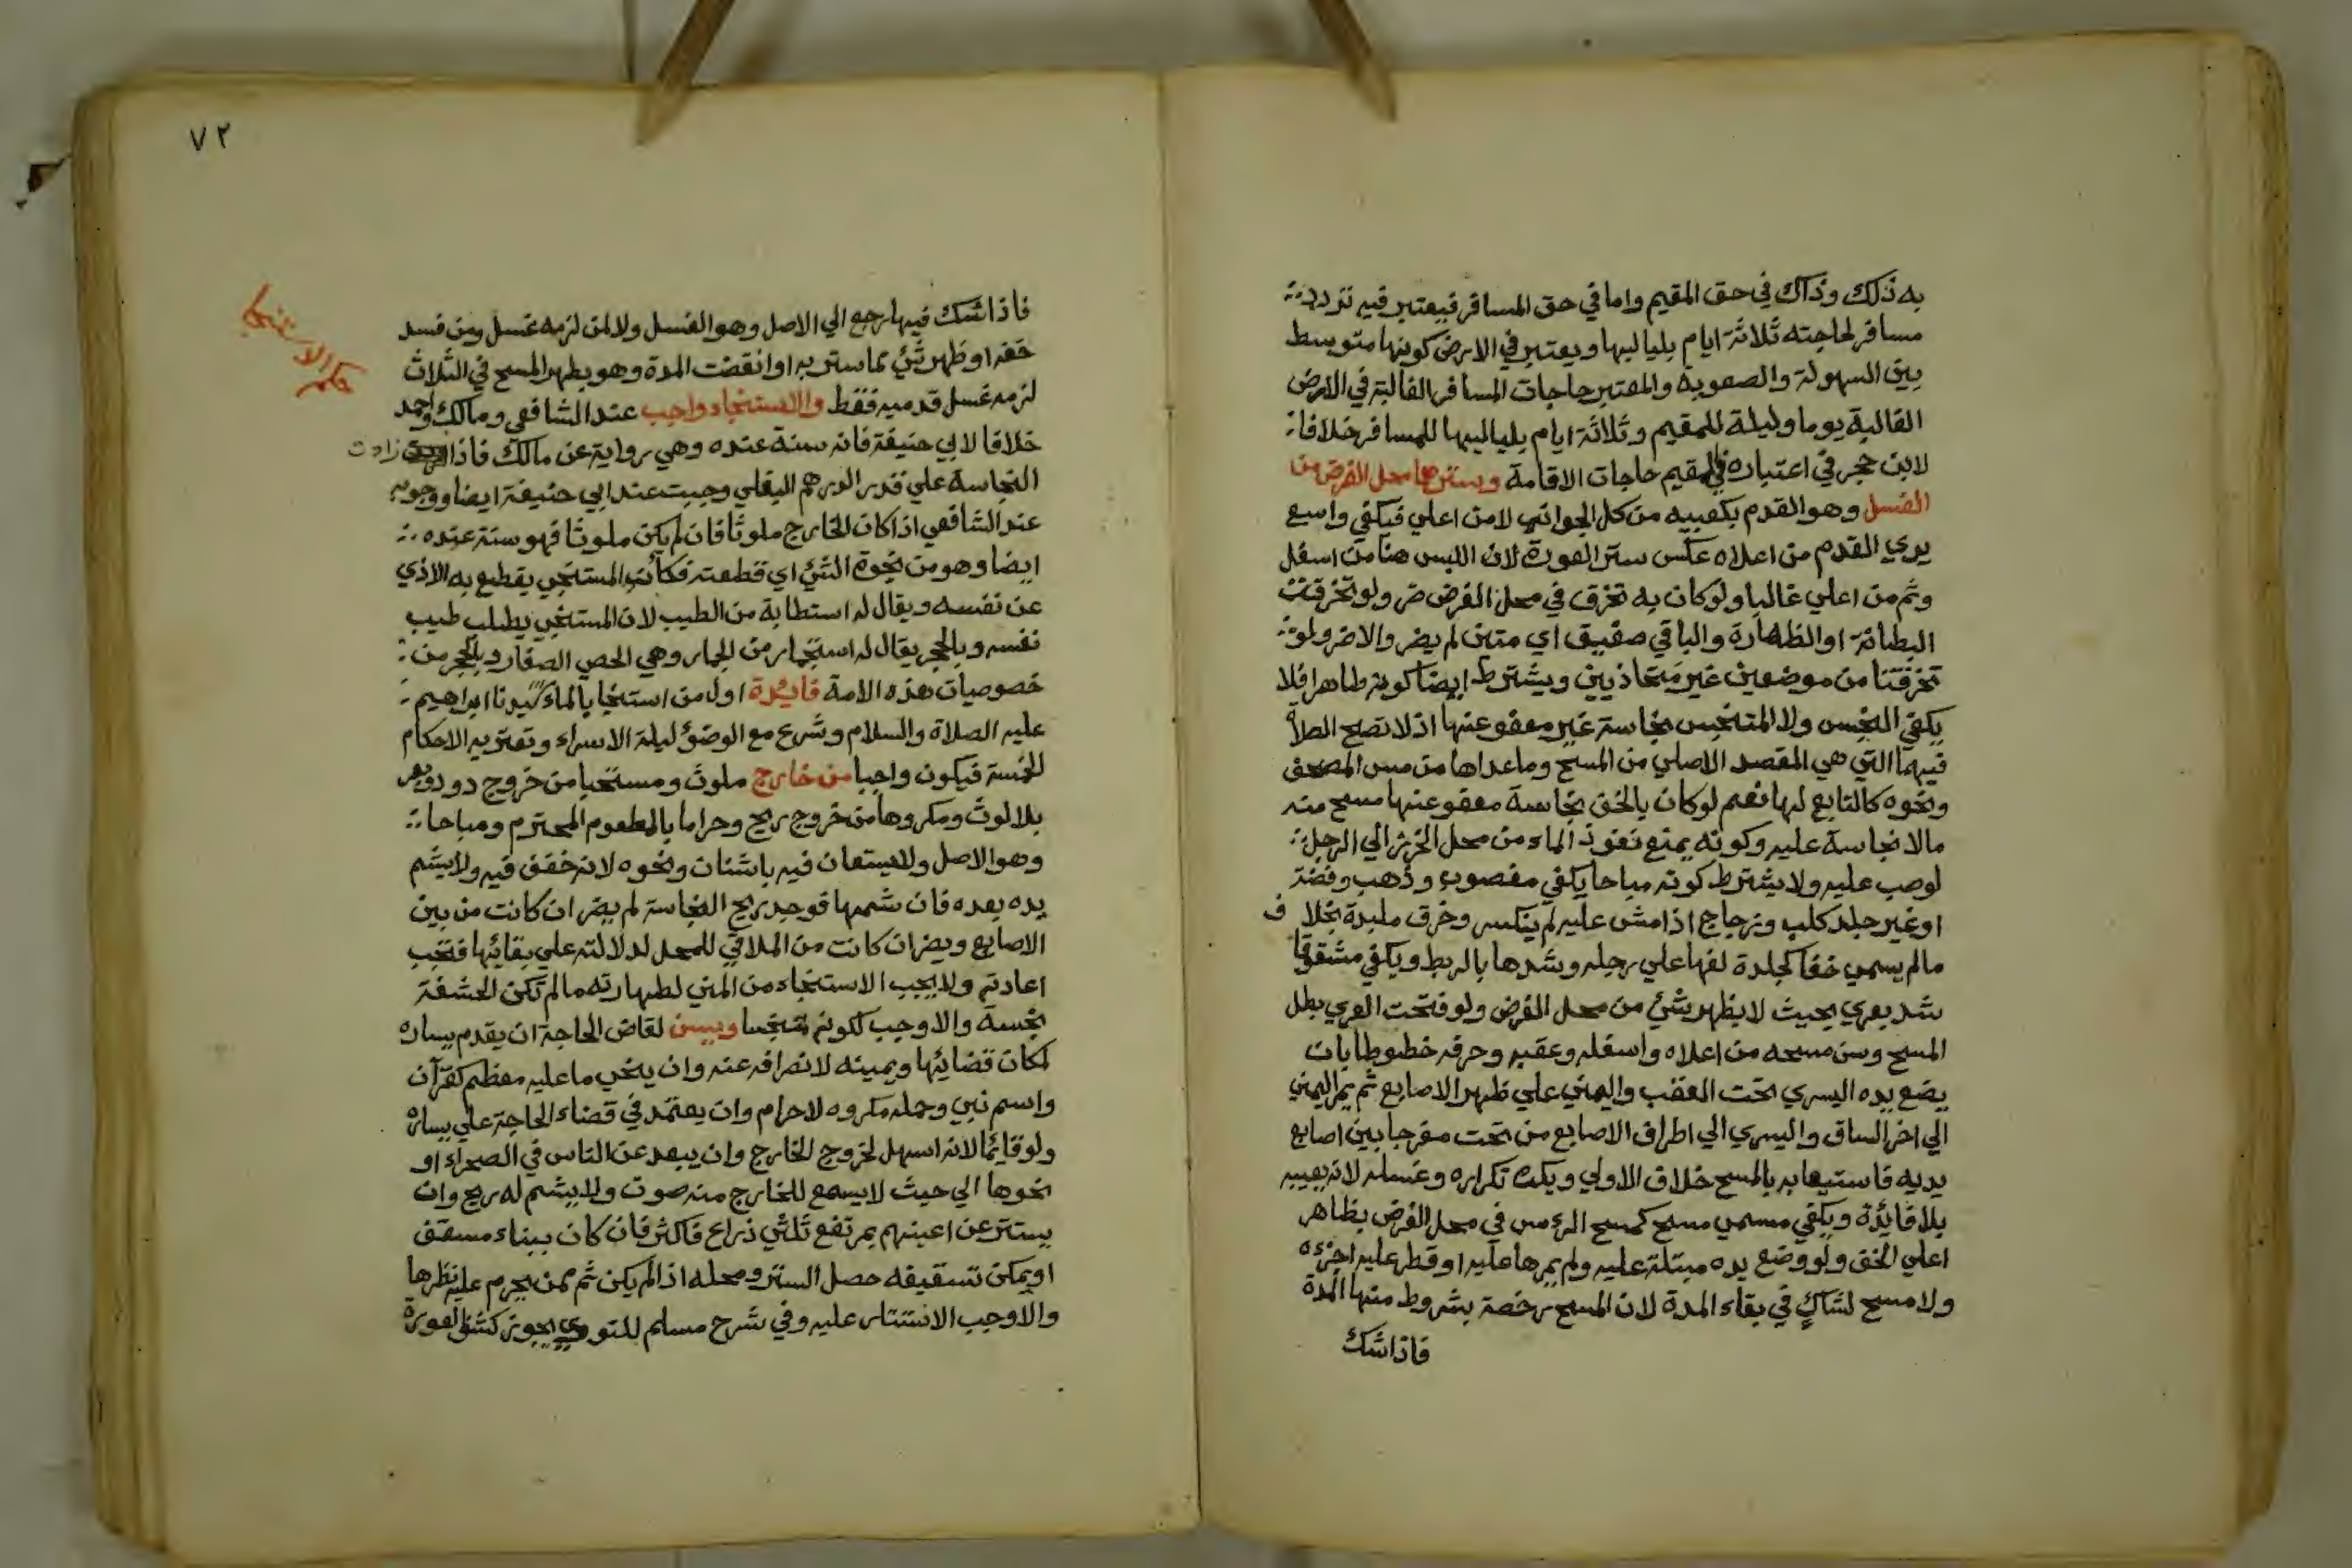 به ذلك وذاك في حق المقيم واما في حق المسافر فيعتبر فيه تردد
مسافر لحاجته ثلاثة ايام بلياليها ويعتبر في الارض كونها متوسط
بين السهولة والصعوبة والمعتبر حاجات المسافر الغالبة في الارض
الغالبة يوما وليلة للمقيم وثلاثة ايام بلياليها للمسافر خلافا
لابن حجر في اعتباره في المقيم حاجات الاقامة وسترهما محل الفرض من
الغسل وهو القدم بكعبيه من كل الجوانب لا من اعلي فيكفي واسع
يري القدم من اعلاه عكس ستر العورة لان اللبس هنا من اسفل
وثم من اعلي غالبا ولو كان به تخرق في محل الفرض ضر ولو تخرقت
البطانة او الظهارة والباقي صفيق اي متين لم يضر والا ضر ولو
تخرقتا من موضعين غير متحاذيين ويشترط ايضا كونه طاهرا فلا
يكفي النجس ولا المتنجس بنجاسة غير معفو عنها اذ لا تصح الصلاة
فيهما التي هي المقصد الاصلي من المسح وما عداها من مس المصحف
ونحوه كالتابع لها نعم لو كان بالخف نجاسة معفو عنها مسح منه
مالا نجاسة عليه وكونه يمنع نفوذ الماء من محل الخرز الي الرجل
لو صب عليه ولا يشترط كونه مباحا يكفي مغصوب وذهب وفضة
او غير جلد كلب وزجاج اذا مشي عليه لم ينكسر وخرق ملبدة بخلاف
مالم يسمي خفا كجلدة لفها علي رجله وشدها بالربط ويكفي مشقوقا
شد بعري بحيث لا يظهر شئ من محل الفرض ولو فتحت العري بطل
المسح وسن مسحه من اعلاه واسفله وعقبه وحرفه خطوطا بان
يضع يده اليسري تحت العقب واليمني علي ظهر الاصابع ثم يمر اليمني
الي اخر الساق واليسري الي اطراف الاصابع من تحت مفرجا بين اصابع
يديه فاستيعابه بالمسح خلاف الاولي ويكره تكراره وغسله لانه يعيبه
بلا فائدة ويكفي مسمي مسح كمسح الرءس في محل الفرض بظاهر
اعلي الخف ولو وضع يده مبتلة عليه ولم يمرها عليه او قطر عليه اجزءه
ولا مسح لشاكٍ في بقاء المدة لان المسح رخصة بشروط منها المدة
فاذا شك
٧٢
فاذا شك فيها رجع الي الاصل وهو الغسل ولا لمن لزمه غسل ومن فسد
خفه او ظهر شئ مما ستر به او انقضت المدة وهو بطهر المسح في الثلاث
لزمه غسل قدميه فقط والاستنجاء واجب عند الشافعي ومالك واحمد
خلافا لابي حنيفة فانه سنة عنده وهي رواية عن مالك فاذا زادت
النجاسة علي قدر الدرهم البغلي وجبت عند ابي حنيفة ايضا ووجوبه
عند الشافعي اذا كان الخارج ملوثا فان لم يكن ملوثا فهو سنة عنده
ايضا وهو من نجوة الشئ اي قطعته فكأن المستنجي يقطع به الاذي
عن نفسه ويقال له استطابة من الطيب لان المستنجي يطلب طيب
نفسه وبالحجر يقال له استجمار من الجمار وهي الحصي الصغار وبالحجر من
خصوصيات هذه الامة فائدة اول من استنجا بالماء سيدنا ابراهيم
عليه الصلاة والسلام وشرع مع الوضؤ ليلة الاسراء وتعتريه الاحكام
الخمسة فيكون واجبا من خارج ملوث ومستحبا من خروج دود وبعر
بلا لوث ومكروها من خروج ريح وحراما بالمطعوم المحترم ومباحا
وهو الاصل ولا يستعان فيه باشنان ونحوه لانه خفف فيه ولا يشم
يده بعده فان شمها فوجد ريح النجاسة لم يضر ان كانت من بين
الاصابع ويضر ان كانت من الملاقي للمحل لدلالته علي بقائها فتجب
اعادته ولا يجب الاستنجاء من المني لطهارته مالم تكن الحشفة
نجسة والا وجب لكونه متنجسا ويسن لقاض الحاجة ان يقدم يساره
لمكان قضائها ويمينه لانصرافه عنه وان ينحي ما عليه معظم كقرآن
واسم نبي وحمله مكروه لا حرام وان يعتمد في قضاء الحاجة علي يساره
ولو قائما لانه اسهل لخروج الخارج وان يبعد عن الناس في الصحراء او
نحوها الي حيث لا يسمع للخارج منه صوت ولا يشم له ريح وان
يستتر عن اعينهم بمرتفع ثلثي ذراع فاكثر فان كان ببناء مسقف
او يمكن تسقيفه حصل الستر ومحله اذا لم يكن ثم من يحرم عليه نظرها
والا وجب الاستتار عليه وفي شرح مسلم للنووي يجوز كشف العورة
حكم الاستنجا